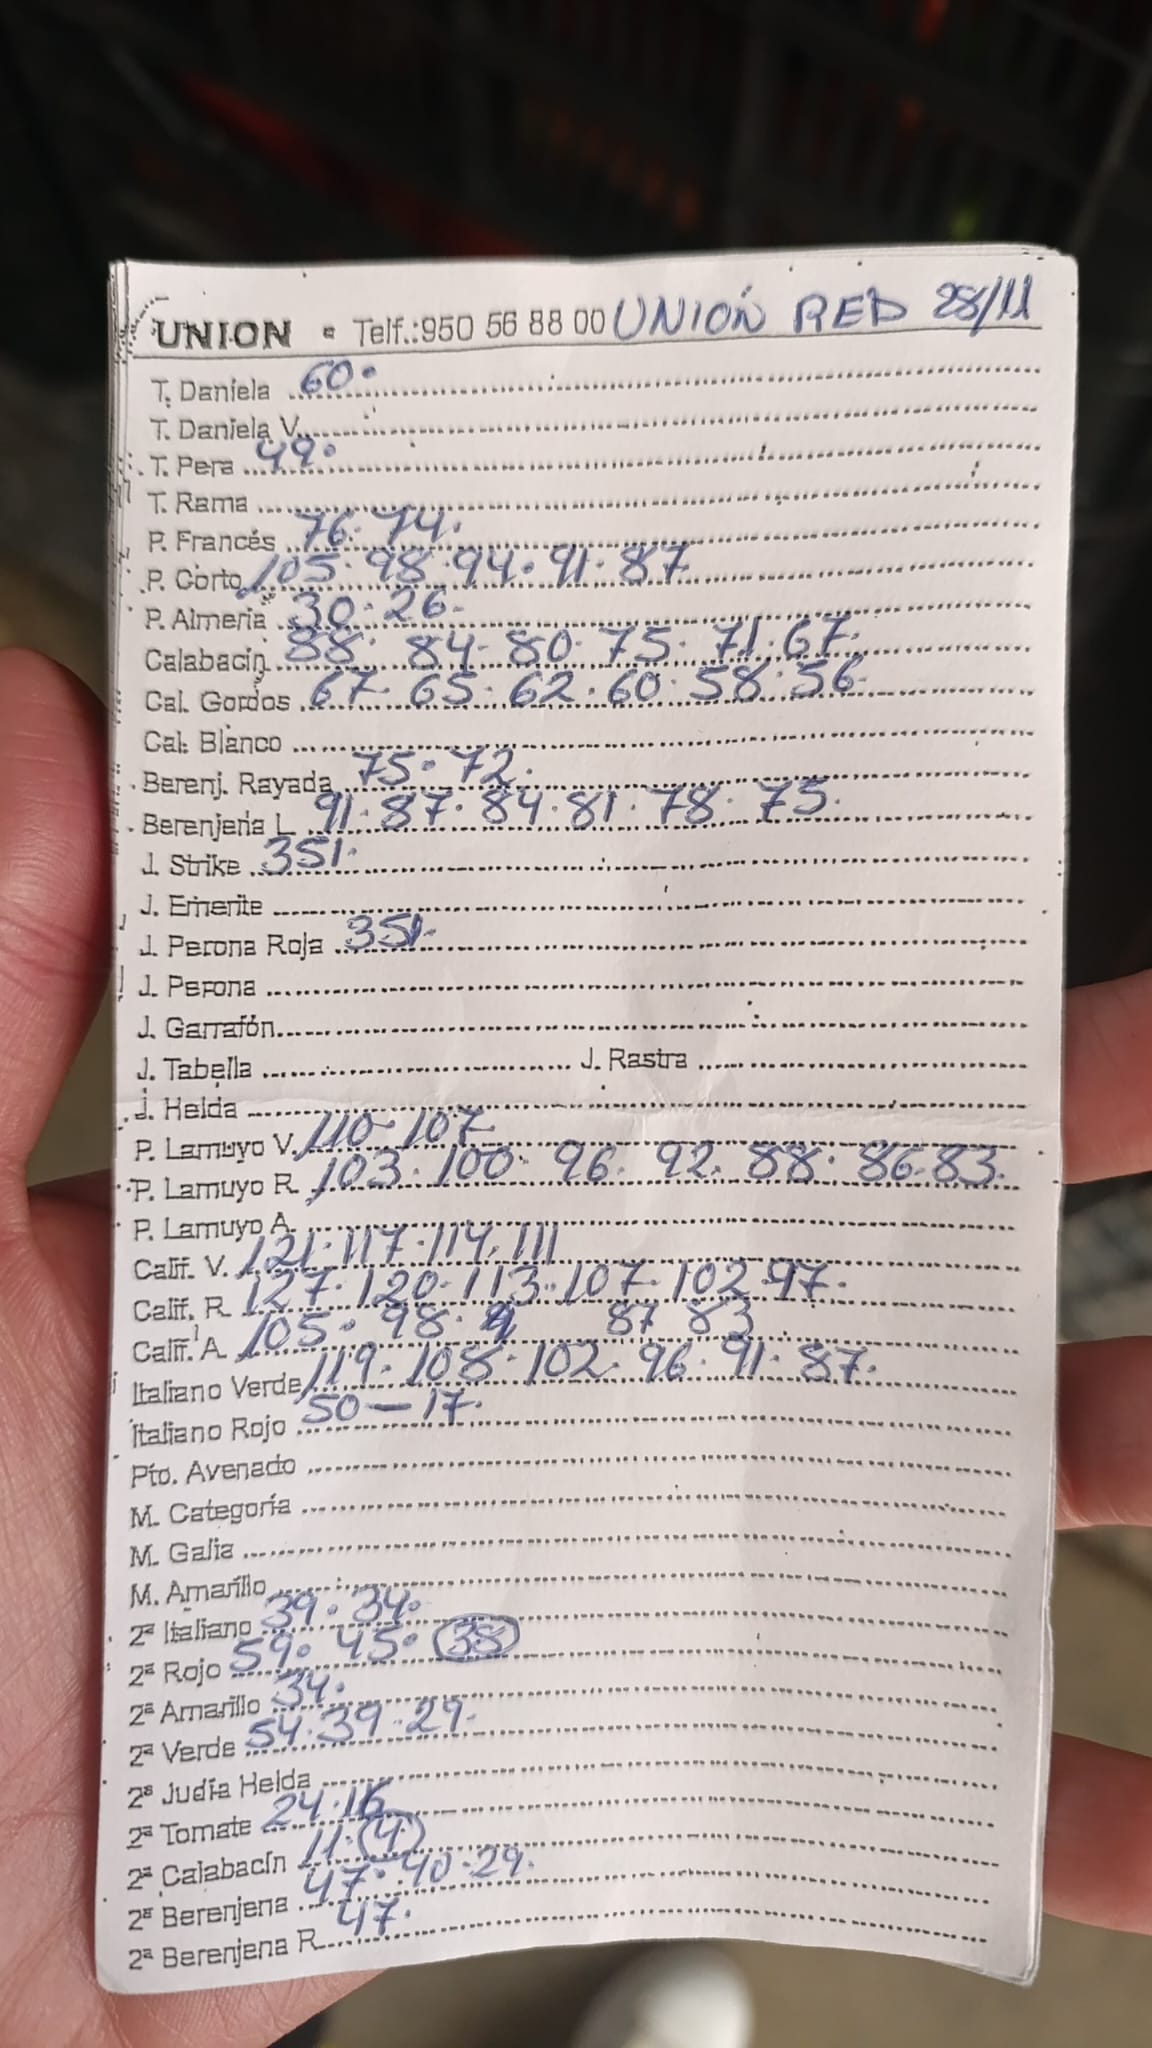 UNION • Telf.:950 56 88 00 UNIÓN RED 28/11
T. Daniela 60.
T. Daniela V.
T. Pera 49.
T. Rama
P. Francés 76. 74.
P. Corto 105. 98. 94. 91. 87
P. Almeria 30. 26.
Calabacín 88. 84. 80. 75. 71. 67.
Cal. Gordos 67. 65. 62. 60. 58. 56.
Cal. Blanco
Berenj. Rayada 75. 72.
Berenjena L. 91. 87. 84. 81. 78. 75.
J. Strike 351.
J. Emerite
J. Perona Roja 351.
J. Perona
J. Garrafón
J. Tabella J. Rastra
J. Helda
P. Lamuyo V. 110. 107
P. Lamuyo R. 103. 100. 96. 92. 88. 86. 83.
P. Lamuyo A.
Calif. V. 121. 117. 114. 111
Calif. R. 127. 120. 113. 107. 102. 97.
Calif. A. 105. 98. 87 83
Italiano Verde 119. 108. 102. 96. 91. 87.
Italiano Rojo 50 — 17.
Pto. Avenado
M. Categoría
M. Galia
M. Amarillo
2ª Italiano 39. 34.
2ª Rojo 59. 45. 38
2ª Amarillo 34.
2ª Verde 54. 39. 29.
2ª Judía Helda
2ª Tomate 24. 16
2ª Calabacín 11. 4.
2ª Berenjena 47. 40. 29.
2ª Berenjena R. 47.